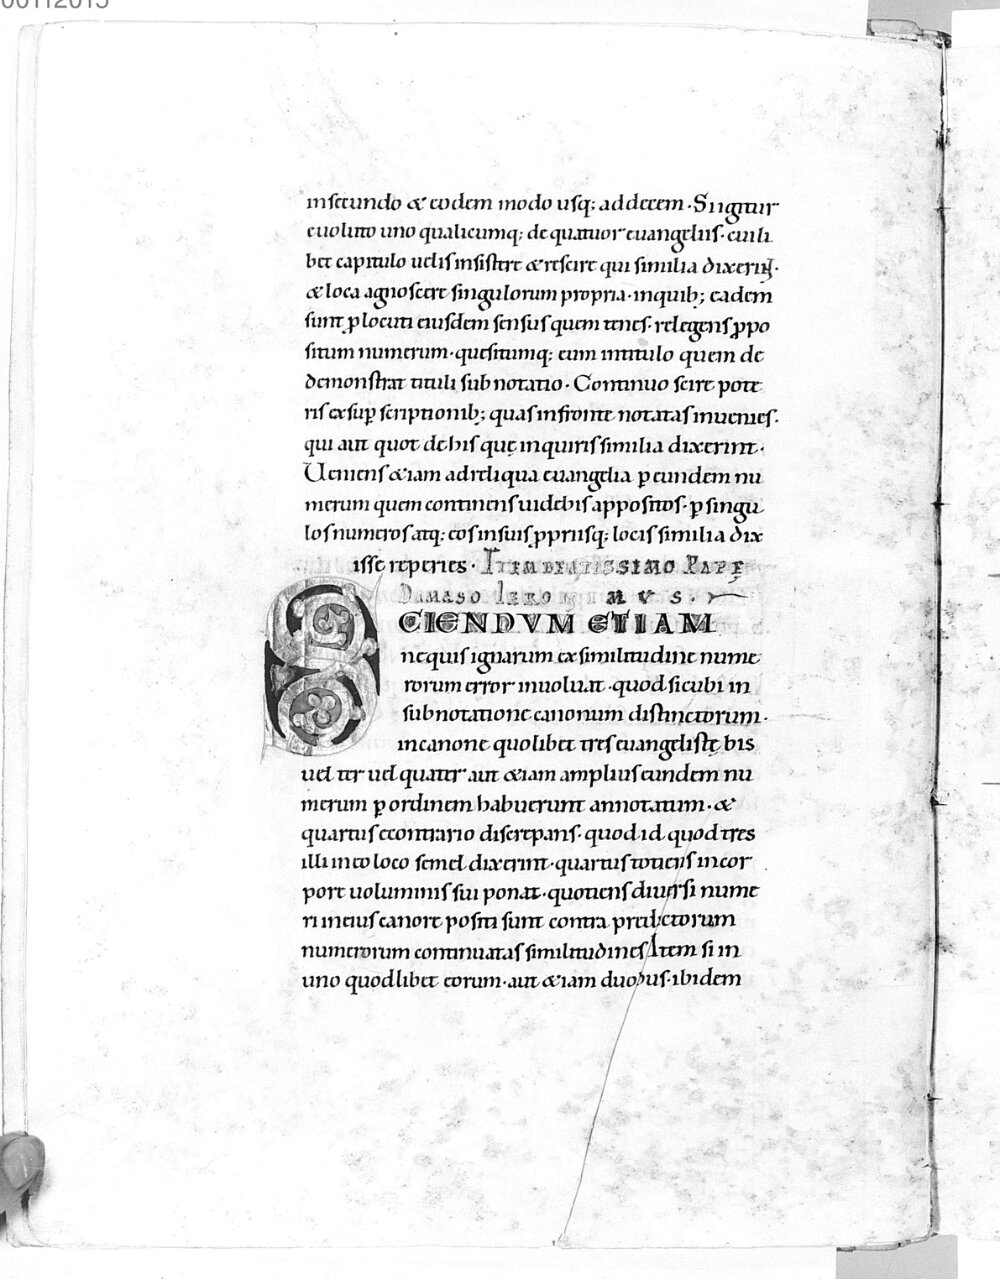 insecundo & eodem modo usq; addecem · Siigitur
euoluto uno qualicumq; de quatuor euangeliis · cuili
bet capitulo uelis insistere & rescire qui similia dixerint ·
& loca agnoscere singulorum propria · inquib; eadem
sunt ꝓlocuti eiusdem sensus quem tenes · relegens ꝓpo
situm numerum · quesitumq; eum intitulo quem de
demonstrat tituli subnotatio · Continuo scire pote
ris exsuꝑ scriptionib; quas infronte notatas inuenies ·
qui aut quot dehis quę inquiris similia dixerint ·
Ueniens &iam ad reliqua euangelia ꝑ eundem nu
merum quem continens uidebis appositos · ꝑ singu
los numeros atq; eos insuis ꝓpriisq; locis similia dix
isse reperies · ITEM BEATISSIMO PAPĘ
DAMASO IERONIMVS ·
SCIENDVM ETIAM
nequis ignarum exsimilitudine nume
rorum error inuoluat · quod sicubi in
subnotatione canonum distinctorum ·
incanone quolibet tres euangelistę bis
uel ter uel quater aut &iam amplius eundem nu
merum ꝑ ordinem habuerunt annotatum · &
quartus econtrario discrepans · quod id quod tres
illi in eo loco semel dixerint · quartus totiens in cor
pore uoluminis sui ponat · quotiens diuersi nume
ri in eius canone positi sunt contra predictorum
numerorum continuatas similitudines Item si in
uno quodlibet eorum · aut &iam duobus · ibidem